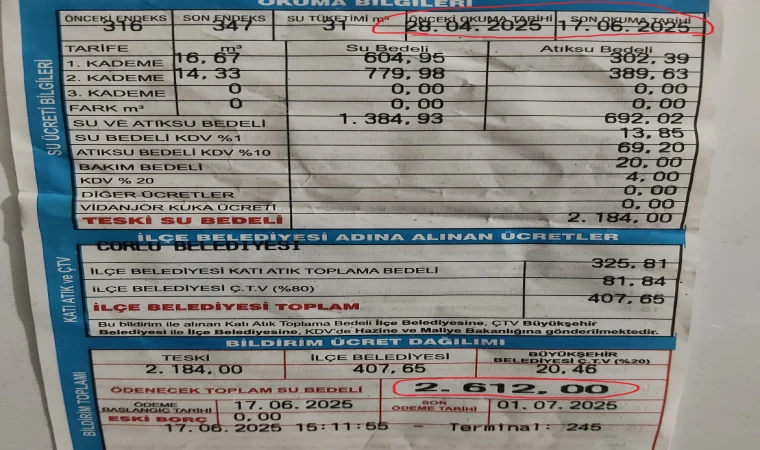 OKUMA BİLGİLERİ
ÖNCEKİ ENDEKS SON ENDEKS SU TÜKETİMİ m³ ÖNCEKİ OKUMA TARİHİ SON OKUMA TARİHİ
316 347 31 28.04.2025 17.06.2025
SU ÜCRETİ BİLGİLERİ
TARİFE m³ Su Bedeli Atıksu Bedeli
1. KADEME 16,67 604,95 302,39
2. KADEME 14,33 779,98 389,63
3. KADEME 0 0,00 0,00
FARK m³ 0 0,00 0,00
SU VE ATIKSU BEDELİ 1.384,93 692,02
SU BEDELİ KDV %1 13,85
ATIKSU BEDELİ KDV %10 69,20
BAKIM BEDELİ 20,00
KDV % 20 4,00
DİĞER ÜCRETLER 0,00
VİDANJÖR KUKA ÜCRETİ 0,00
TESKİ SU BEDELİ 2.184,00
KATI ATIK ve ÇTV
İLÇE BELEDİYESİ ADINA ALINAN ÜCRETLER
CORLU BELEDIYESI
İLÇE BELEDİYESİ KATI ATIK TOPLAMA BEDELİ 325,81
İLÇE BELEDİYESİ Ç.T.V (%80) 81,84
İLÇE BELEDİYESİ TOPLAM 407,65
Bu bildirim ile alınan Katı Atık Toplama Bedeli İlçe Belediyesine, ÇTV Büyükşehir
Belediyesi ile İlçe Belediyesine, KDV'de Hazine ve Maliye Bakanlığına gönderilmektedir.
BİLDİRİM TOPLAMI
BİLDİRİM ÜCRET DAĞILIMI
TESKİ İLÇE BELEDİYESİ BÜYÜKŞEHİR
BELEDİYESİ Ç.T.V (%20)
2.184,00 407,65 20,46
ÖDENECEK TOPLAM SU BEDELİ 2.612,00
ÖDEME
BAŞLANGIÇ TARİHİ 17.06.2025 SON
ÖDEME TARİHİ 01.07.2025
ESKİ BORÇ 0,00
17.06.2025 15:11:55 - Terminal: 245